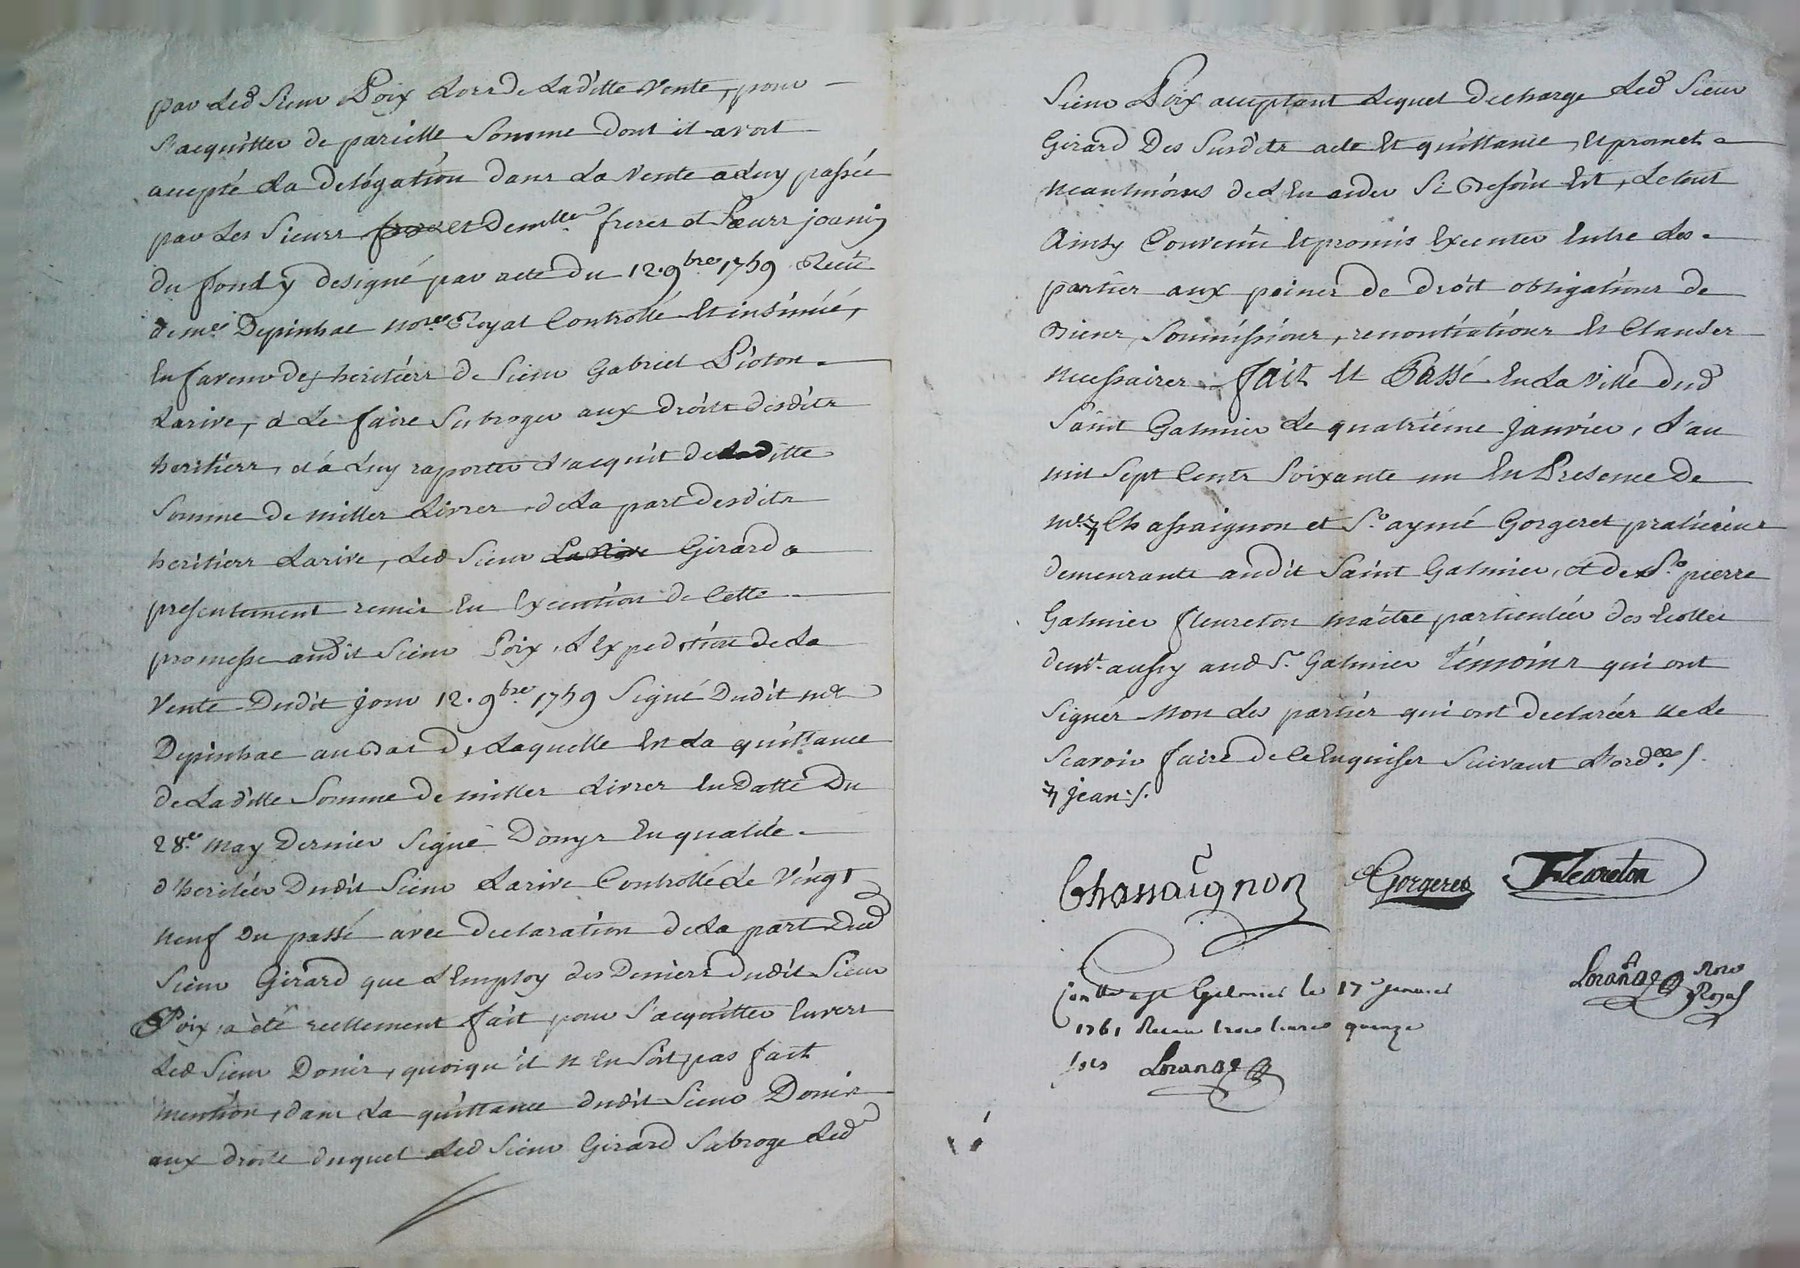 par Led Sieur Poix Lors de Laditte Vente, pour
s'acquitter de pareille Somme dont il avoit
accepté La délégation dans La Vente a Luy passée
par Les Sieurs et Demlle freres et Sœurs joanin
du fond y designé par acte du 12. 9bre 1759 Reçu
de me Depinhac Nore Royal Controllé Et insinué,
En faveur des heritiers de Sieur Gabriel Pioton
Larive, à Le faire Subroger aux droits desdits
heritiers, et à Luy raporter L'acquit de Laditte
Somme de milles Livres, de La part desdits
heritiers Larive, Led Sieur Larive Girard a
presentement remis En Execution de Cette
promesse audit Sieur Poix, L'Expedition de La
Vente Dudit jour 12. 9bre 1759 Signé Dudit me
Depinhac au bas de Laquelle Est La quittance
de Laditte Somme de milles Livres En datte Du
28e May Dernier Signé Donys En qualité
d'heritier Dudit Sieur Larive Controllé Le Vingt
neuf Du passé avec declaration de La part Dud
Sieur Girard que L'Employ des Deniers dudit Sieur
Poix a été reellement fait pour s'acquitter Envers
Led Sieur Donis, quoiqu'il n'En Soit pas fait
mention, dans La quittance dudit Sieur Donis
aux droits duquel Led Sieur Girard Subroge Led
Sieur Poix acceptant Lequel decharge Led Sieur
Girard Des Susdits acte Et quittance, Et promet
neantmoins de L'En aider Si Besoin Est, Le tout
Ainsy Convenu Et promis Executer Entre Les
parties aux peines de droit obligations de
Biens, Soumissions, renontiations Et Clauses
necessaires fait Et Passé En La Ville dud
Saint Galmier Le quatriéme Janvier, L'an
mil Sept Cents Soixante un En Presence de
me Chassaignon et Sr aymé Gorgeret praticiens
demeurants audit Saint Galmier, et de Sr pierre
Galmier fleureton maitre particulier des Ecolles
demt aussy aud St Galmier témoins qui ont
Signés Non Les partiés qui ont declarées ne Le
Scavoir faire de Ce Enquises Suivant L'ordce /.
jean /.
Chassaignon Gorgeret Fleureton
Conllé a St Galmier le 17e janvier
1761 Receu trois livres quinze
sols Lorange
Lorange Nore
Royal